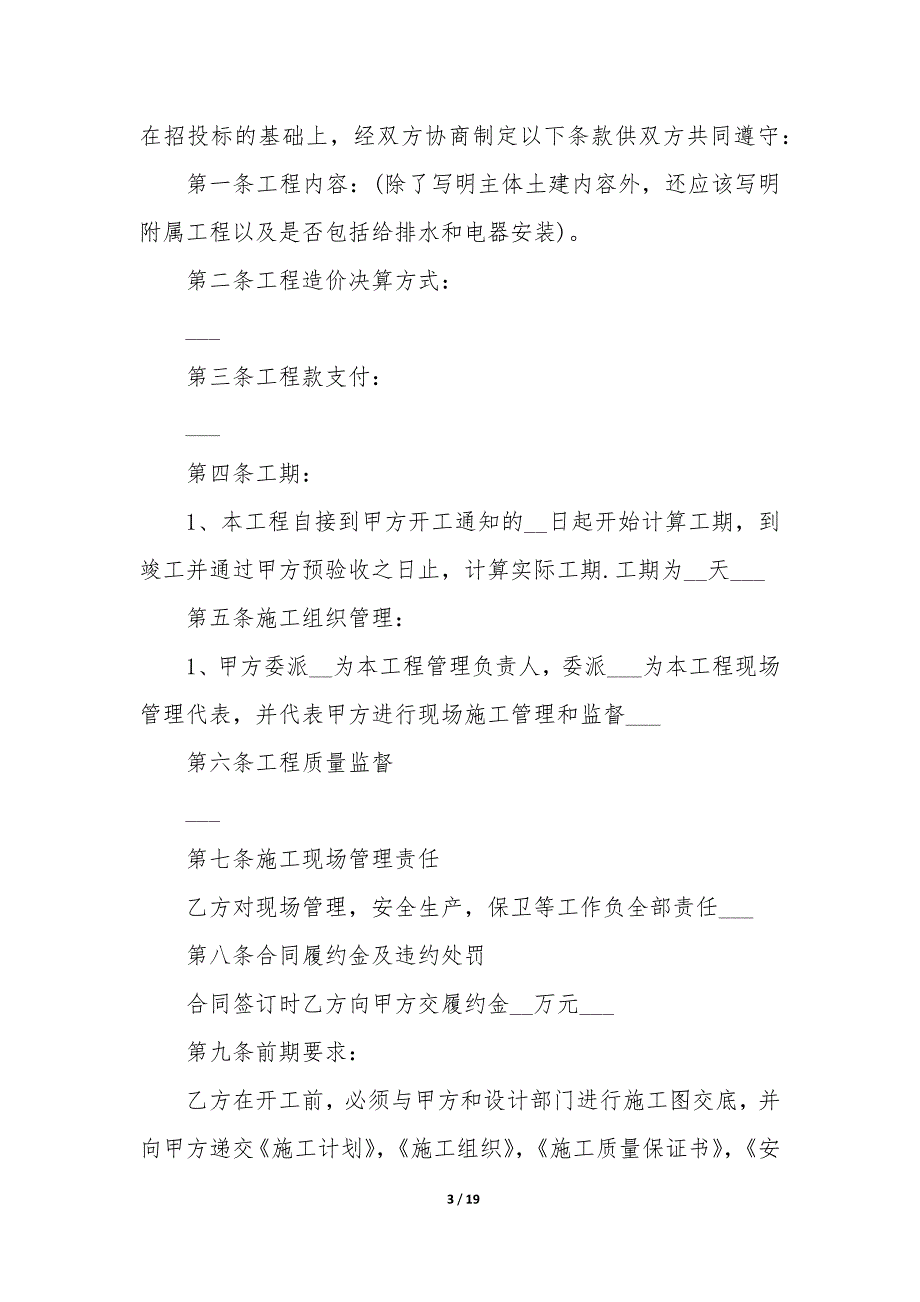 在招投标的基础上，经双方协商制定以下条款供双方共同遵守：
第一条工程内容：(除了写明主体土建内容外，还应该写明
附属工程以及是否包括给排水和电器安装)。
第二条工程造价决算方式：
___
第三条工程款支付：
___
第四条工期：
1、本工程自接到甲方开工通知的__日起开始计算工期，到
竣工并通过甲方预验收之日止，计算实际工期.工期为__天___
第五条施工组织管理：
1、甲方委派__为本工程管理负责人，委派___为本工程现场
管理代表，并代表甲方进行现场施工管理和监督___
第六条工程质量监督
___
第七条施工现场管理责任
乙方对现场管理，安全生产，保卫等工作负全部责任___
第八条合同履约金及违约处罚
合同签订时乙方向甲方交履约金__万元___
第九条前期要求：
乙方在开工前，必须与甲方和设计部门进行施工图交底，并
向甲方递交《施工计划》，《施工组织》，《施工质量保证书》，《安
3 / 19